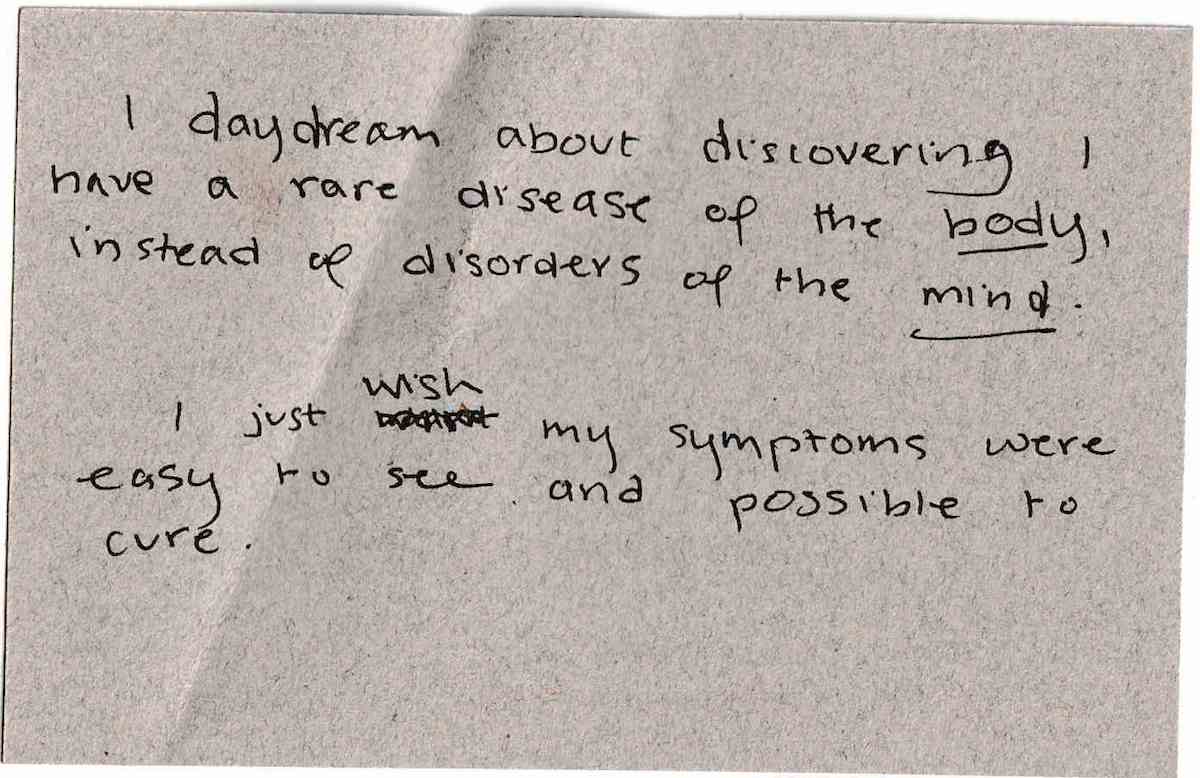 I daydream about discovering I
have a rare disease of the body,
instead of disorders of the mind.
wish
I just my symptoms were
easy to see and possible to
cure.